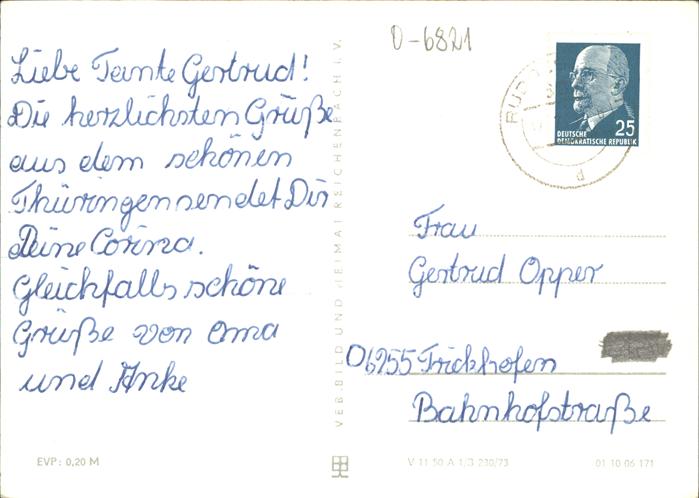 Liebe Tante Gertrud!
Die herzlichsten Grüße
aus dem schönen
Thüringen sendet Dir
Deine Corina.
Gleichfalls schöne
Grüße von Oma
und Anke
EVP: 0,20 M
VEB BILD UND HEIMAT REICHENBACH I. V.
D-6821
RUD
25
DEUTSCHE
DEMOKRATISCHE REPUBLIK
d
Frau
Gertrud Opper
06255 Frickhofen
Bahnhofstraße
V 11 50 A 1/3 230/73
01 10 06 171